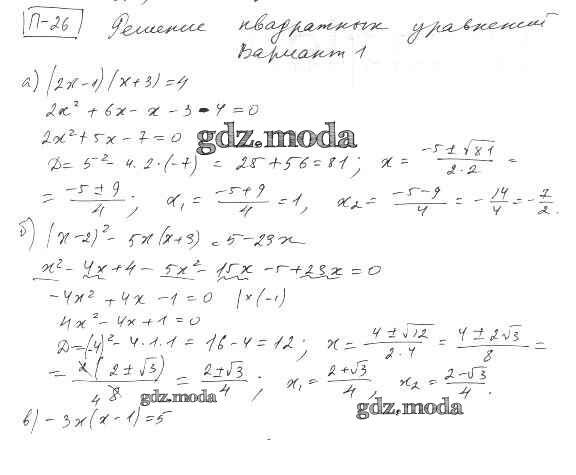 П-26 Решение квадратных уравнений
Вариант 1
а) (2x-1)(x+3)=4
2x² + 6x - x - 3 - 4 = 0
2x² + 5x - 7 = 0 gdz.moda
D = 5² - 4·2·(-7) = 25 + 56 = 81; x = (-5 ± √81)/(2·2) =
= (-5 ± 9)/4; x₁ = (-5+9)/4 = 1, x₂ = (-5-9)/4 = -14/4 = -7/2.
б) (x-2)² - 5x(x+3) = 5 - 23x
x² - 4x + 4 - 5x² - 15x - 5 + 23x = 0
-4x² + 4x - 1 = 0 |×(-1)
4x² - 4x + 1 = 0
D = (-4)² - 4·1·1 = 16 - 4 = 12; x = (4 ± √12)/(2·4) = (4 ± 2√3)/8 =
= 2(2 ± √3)/8 4 = (2 ± √3)/4; x₁ = (2+√3)/4, x₂ = (2-√3)/4.
gdz.moda gdz.moda
в) -3x(x-1)=5